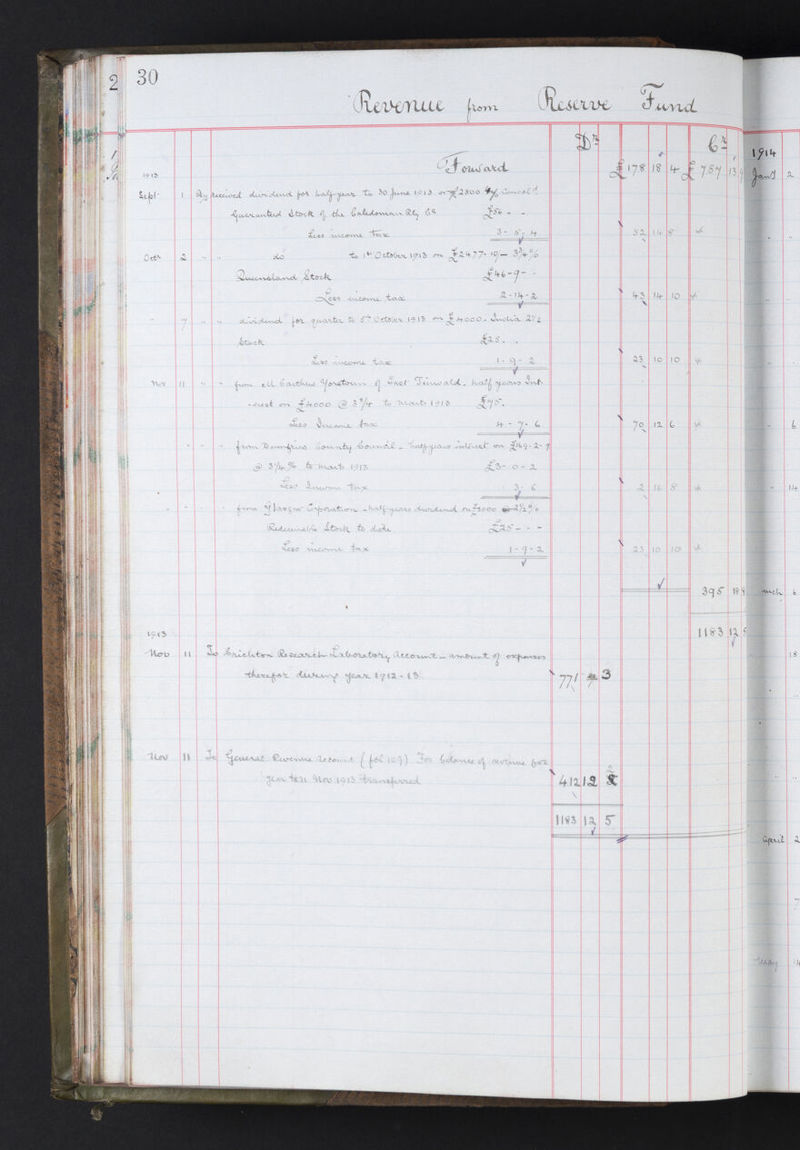 2 30
Revenue from Reserve Fund
Dr Cr
Forward £178 18 4 £787 13 9
1913
Sept 1 By received dividend for half-year to 30 June 1913 on £2800 4%
Guaranteed Stock of the Caledonian Rly Co £56 - -
Less income tax 3 - 5 - 4 52 14 8
Octr 2 " " do to 1st October 1913 on £2477-19/- 3¾%
Queensland Stock £46-9- -
Less income tax 2-14-2 43 14 10
" 7 " " dividend for quarter to 5th October 1913 on £4000 - India 2½
Stock £25 . .
Less income tax 1-9-2 23 10 10
Nov 11 " " from of East Tinwald, half years Int
-erest on £4000 @ 3¾ to Marts 1913 £75.
Less Income tax 4-7-6 70 12 6
" " " from Dumfries County Council - half years interest on £169-2-9
@ 3¾% to Marts 1913 £3-0-2
Less Income tax 3-6 2 16 8
" " " from Glasgow Corporation - half years dividend on £2000 2½%
Redeemable Stock to date £25 - - -
Less income tax 1-9-2 23 10 10
395 18
1183 12
1913
Nov 11 To Crichton Research Laboratory account - amount of expenses
therefor during year 1912-13. 771 3
Nov 11 To General Revenue account (fol 109) For balance of revenue for
year to 11 Nov 1913 transferred 412 12 2
1183 12 5
1914
Jany 2
6
14
Mch 6
18
April 2
7
May 14